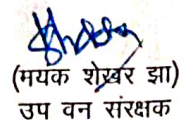 (मयंक शेखर झा)
उप वन संरक्षक